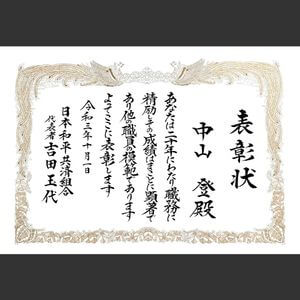 表彰状
中山 登殿
あなたは二十年にわたり職務に
精励しその成績はまことに顕著で
あり他の職員の模範であります
よってここに表彰します
令和三年十月一日
日本和平共済組合
代表者 吉田玉代